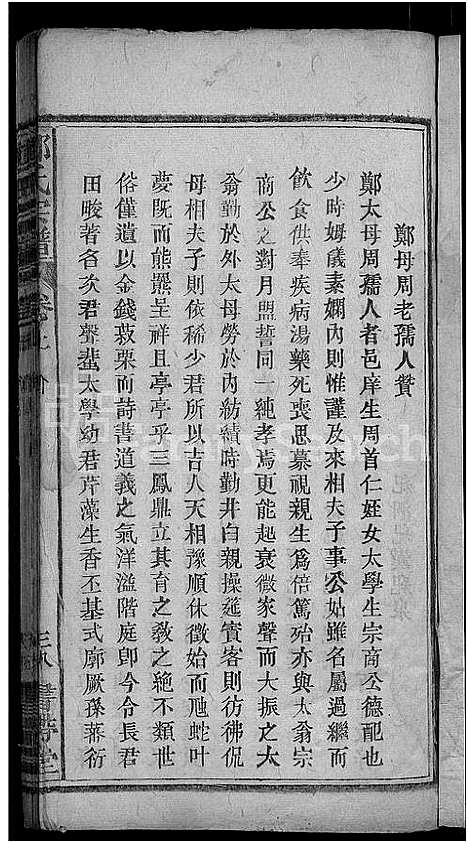 鄭母周老孺人贊
鄭太母周孺人者邑庠生周首仁姪女太學生宗商公德配也
少時姆儀素嫻內則惟謹及來相夫子事公姑雖名屬過繼而
飲食供奉疾病湯藥死喪思慕視親生爲倍篤殆亦與太翁宗
商公之對月盟誓同一純孝焉更能起衰微家聲而大振之大
翁勤於外太母勞於內紡績時勤井臼親操延賓客則彷彿侃
母相夫子則依稀少君所以吉人天相豫順休徵始而虺蛇叶
夢既而熊羆呈祥且亭亭乎三鳳鼎立其育之敎之絶不類世
俗僅遺以金錢菽粟而詩書道義之氣洋溢階庭卽今令長君
田畯著名次君聲蜚太學幼君芹藻生香丕基式廓厥孫蕃衍
氏 譜 卷上
三八 書帶堂
FamilySearch